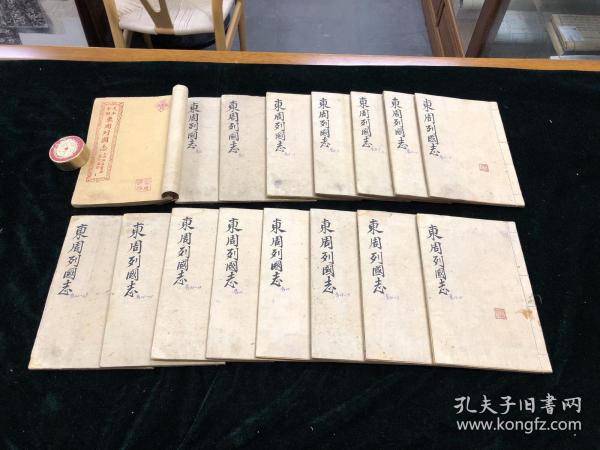 東周列國志
東周列國志
東周列國志
東周列國志
東周列國志
東周列國志
東周列國志
東周列國志
東周列國志
東周列國志
東周列國志
東周列國志
東周列國志
東周列國志
東周列國志
東周列國志
孔夫子旧書网
www.kongfz.com